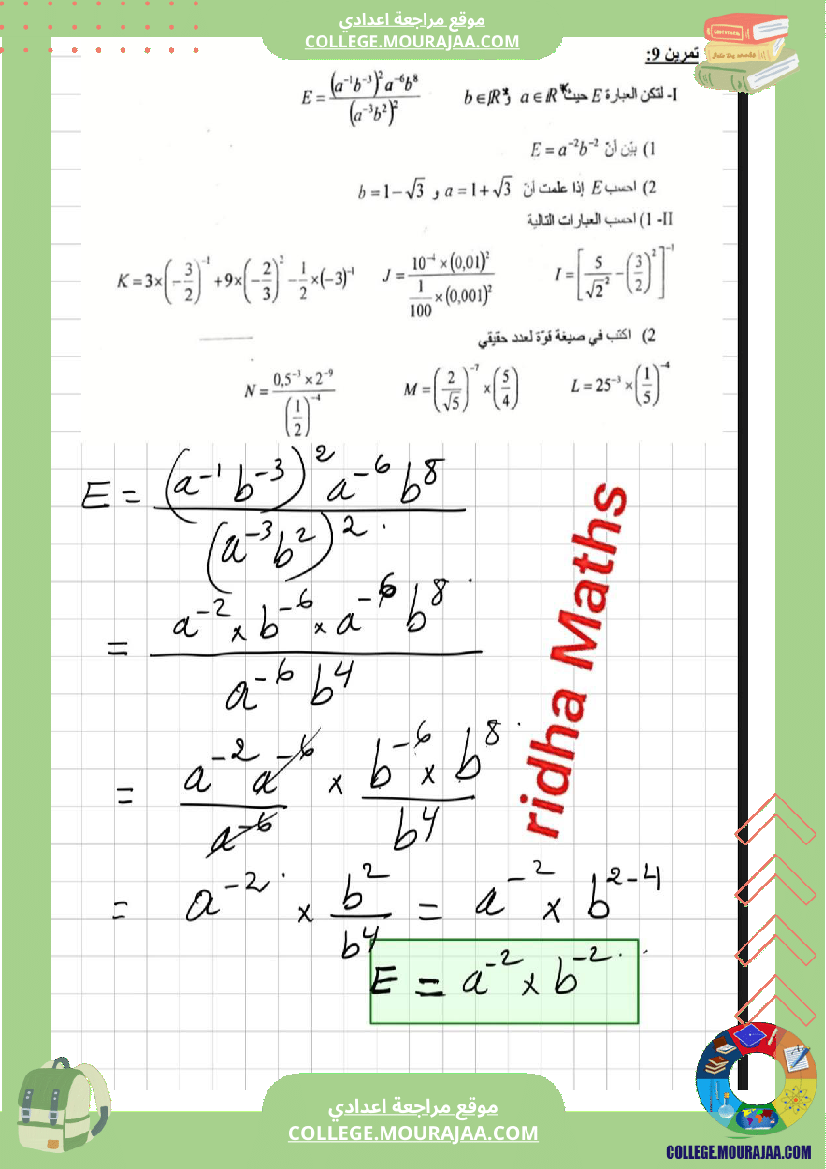 موقع مراجعة اعدادي
COLLEGE.MOURAJAA.COM
تمرين 9:
I- لتكن العبارة E حيث a ∈ ℝ* و b ∈ ℝ* E = (a⁻¹b⁻³)² a⁻⁶b⁸ / (a⁻³b²)²
1) بيّن أنّ E = a⁻²b⁻²
2) احسب E إذا علمت أنّ a = 1 + √3 و b = 1 − √3
II- 1) احسب العبارات التالية
I = [5/√2² − (3/2)²]⁻¹ J = (10⁻⁴ × (0,01)²) / (1/100 × (0,001)²) K = 3×(−3/2)⁻¹ + 9×(−2/3)² − 1/2 × (−3)⁻¹
2) اكتب في صيغة قوّة لعدد حقيقي
L = 25⁻³ × (1/5)⁻⁴ M = (2/√5)⁻⁷ × (5/4) N = (0,5⁻³ × 2⁻⁹) / (1/2)⁻⁴
E = (a⁻¹ b⁻³)² a⁻⁶ b⁸ / (a⁻³ b²)²
= a⁻² × b⁻⁶ × a⁻⁶ b⁸ / a⁻⁶ b⁴
= a⁻² a⁻⁶ / a⁻⁶ × b⁻⁶ × b⁸ / b⁴
= a⁻² × b² / b⁴ = a⁻² × b²⁻⁴
E = a⁻² × b⁻²
ridha Maths
موقع مراجعة اعدادي
COLLEGE.MOURAJAA.COM
COLLEGE.MOURAJAA.COM